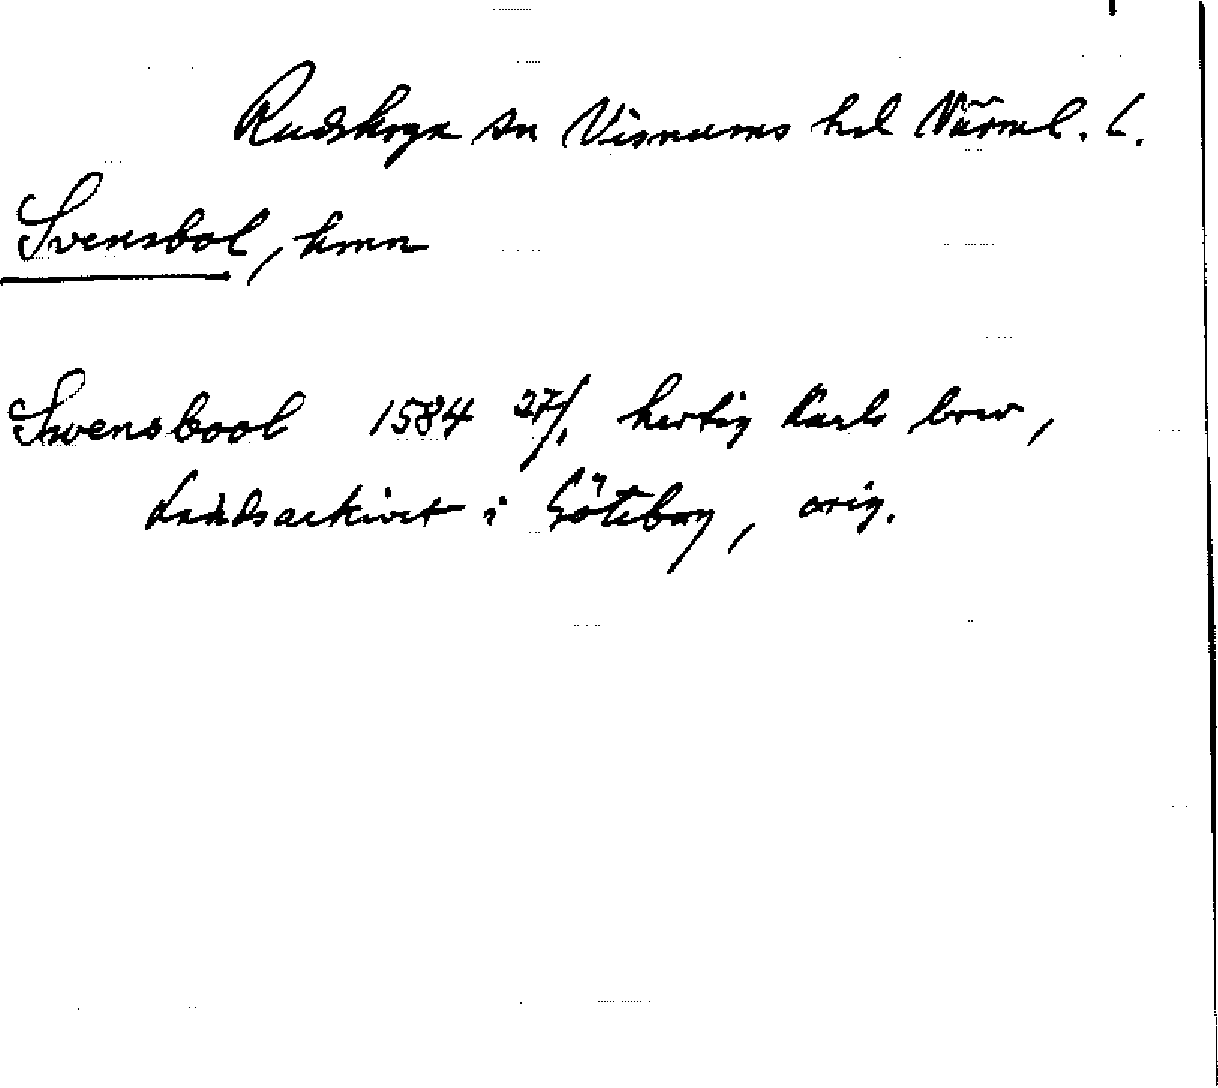 Rudskoga sn Visnums hd Värml. l.
Svensbol, hmn
Swensbool 1584 27/1 hertig Karls brev,
Landsarkivet i Göteborg, orig.